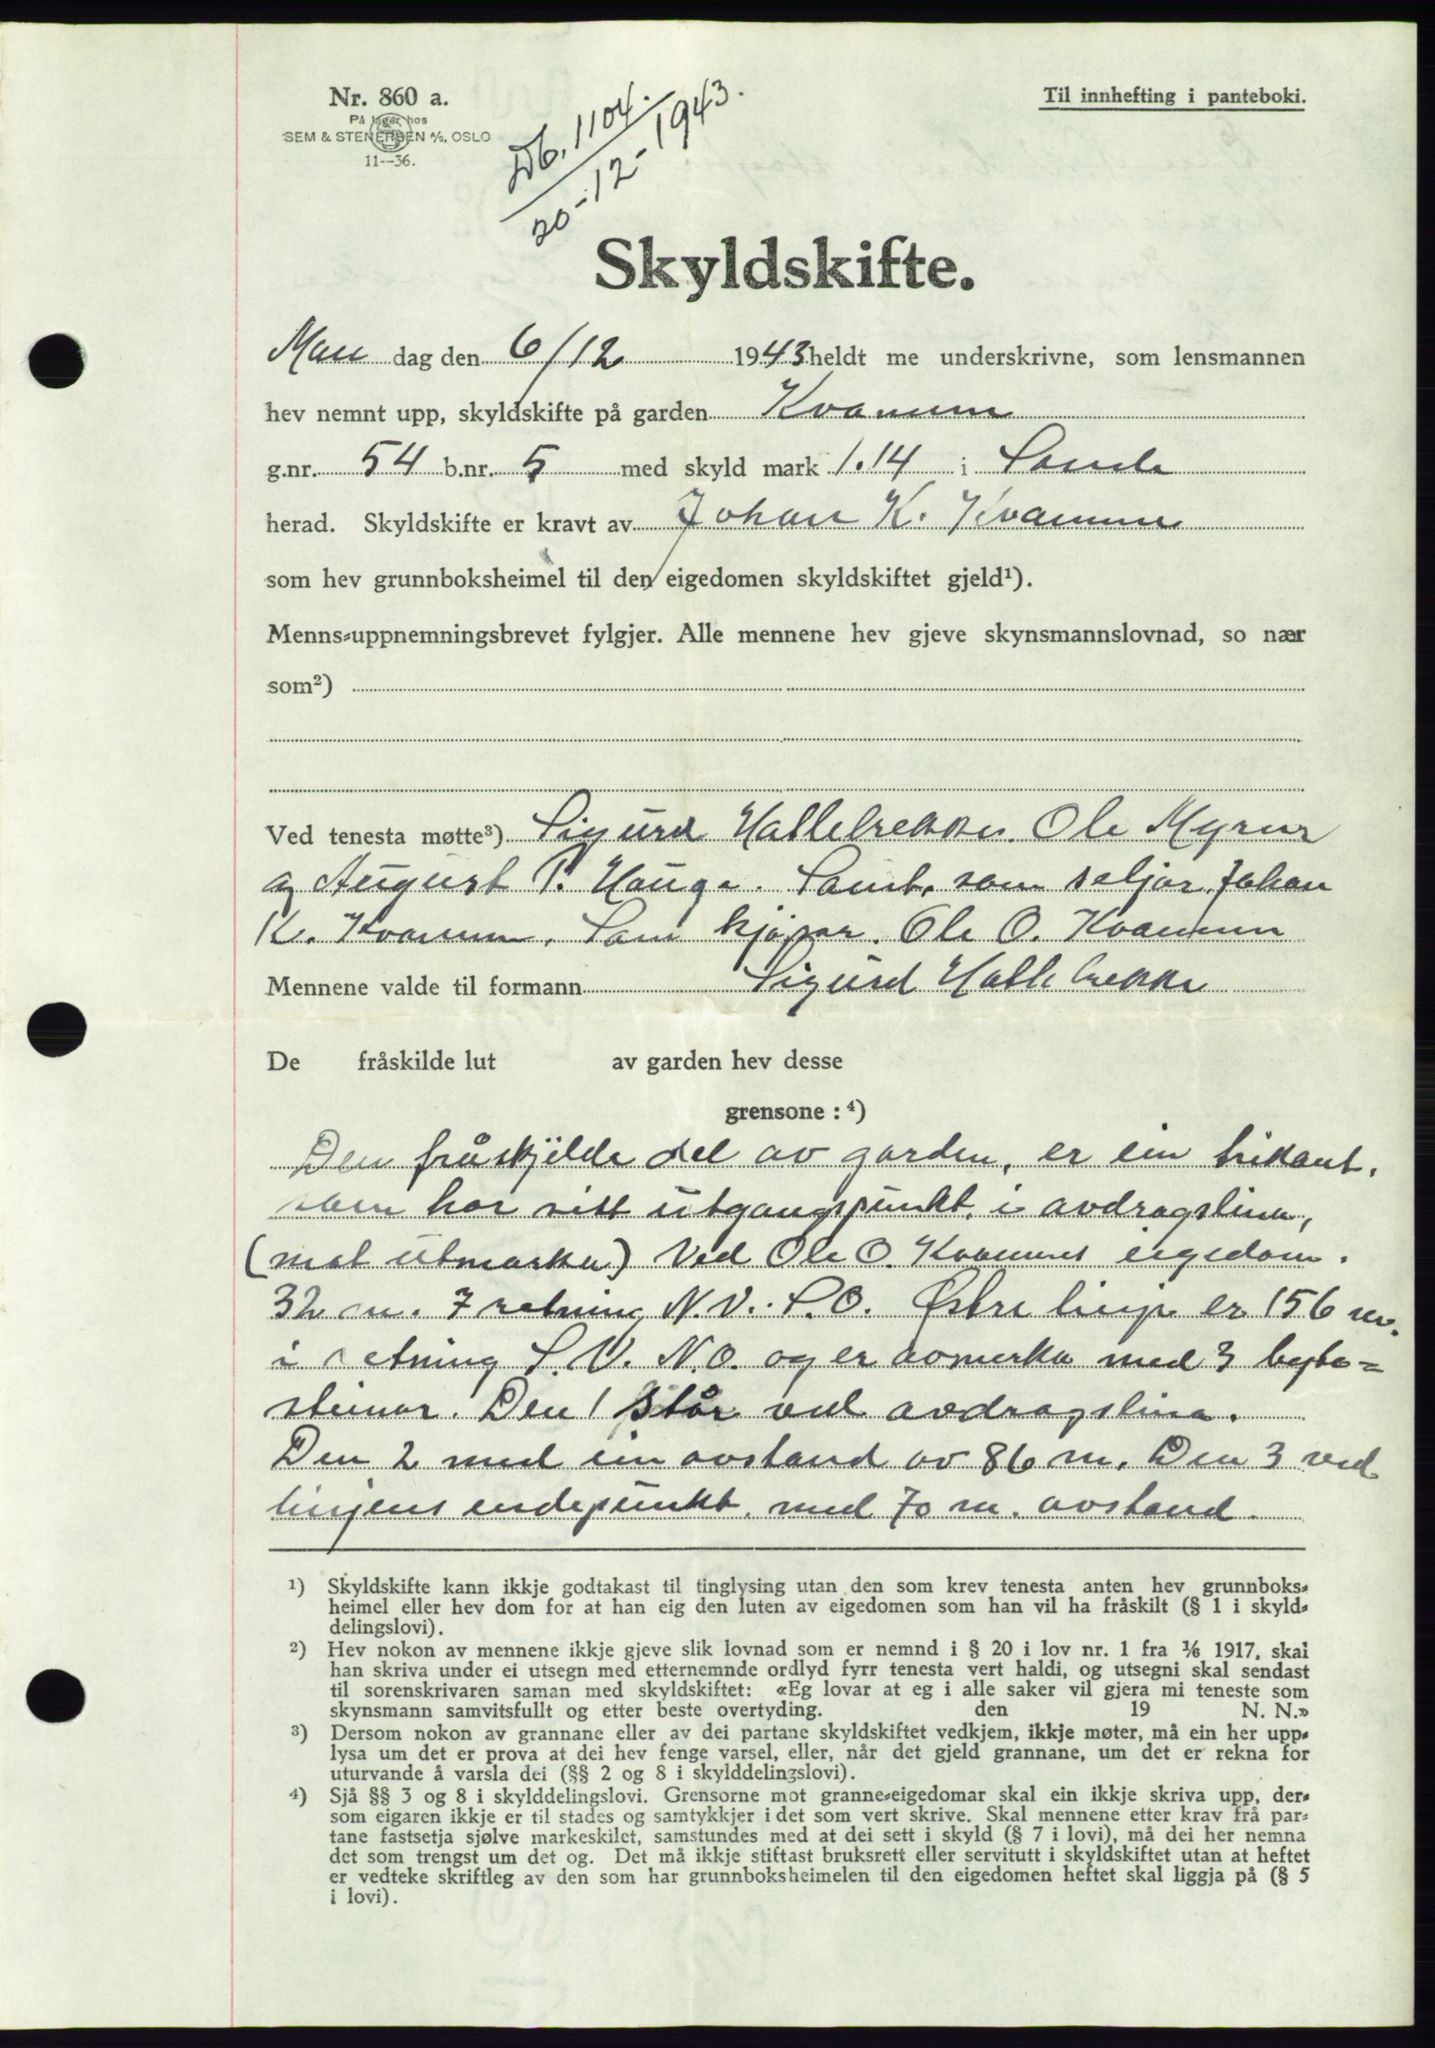 Nr. 860 a.
På lager hos
SEM & STENERSEN A/S, OSLO
11--36.
Db. 1104.
20-12-1943.
Til innhefting i panteboki.
Skyldskifte.
Man dag den 6/12 1943 heldt me underskrivne, som lensmannen
hev nemnt upp, skyldskifte på garden Kvamm
g.nr. 54 b.nr. 5 med skyld mark 1.14 i Sande
herad. Skyldskifte er kravt av Johan K. Kvamm
som hev grunnboksheimel til den eigedomen skyldskiftet gjeld¹).
Menns-uppnemningsbrevet fylgjer. Alle mennene hev gjeve skynsmannslovnad, so nær
som²)
Ved tenesta møtte³) Sigurd Hallebrekke. Ole Myren
og August P. Hauge. Samt, som seljar Johan
K. Kvamm. Som kjøpar. Ole O. Kvamm
Mennene valde til formann Sigurd Hallebrekke
De fråskilde lut av garden hev desse
grensone : ⁴)
Den fråskjilde del av garden, er ein trikant,
som har sitt utgangspunkt i avdragslina,
(mot utmarka) Ved Ole O. Kvamms eigedom.
32 m. I retning N.V. S.O. Østre linje er 156 m.
i retning S.V. N.O. og er avmerka med 3 byte=
steinar. Den 1 står ved avdragslina.
Den 2 med ein avstand av 86 m. Den 3 ved
linjens endepunkt, med 70 m. avstand.
¹) Skyldskifte kann ikkje godtakast til tinglysing utan den som krev tenesta anten hev grunnboks-
heimel eller hev dom for at han eig den luten av eigedomen som han vil ha fråskilt (§ 1 i skyld-
delingslovi).
²) Hev nokon av mennene ikkje gjeve slik lovnad som er nemnd i § 20 i lov nr. 1 fra 1/6 1917, skal
han skriva under ei utsegn med etternemnde ordlyd fyrr tenesta vert haldi, og utsegni skal sendast
til sorenskrivaren saman med skyldskiftet: «Eg lovar at eg i alle saker vil gjera mi teneste som
skynsmann samvitsfullt og etter beste overtyding. den 19 N. N.»
³) Dersom nokon av grannane eller av dei partane skyldskiftet vedkjem, ikkje møter, må ein her upp-
lysa um det er prova at dei hev fenge varsel, eller, når det gjeld grannane, um det er rekna for
uturvande å varsla dei (§§ 2 og 8 i skylddelingslovi).
⁴) Sjå §§ 3 og 8 i skylddelingslovi. Grensorne mot granne-eigedomar skal ein ikkje skriva upp, der-
som eigaren ikkje er til stades og samtykkjer i det som vert skrive. Skal mennene etter krav frå par-
tane fastsetja sjølve markeskilet, samstundes med at dei sett i skyld (§ 7 i lovi), må dei her nemna
det som trengst um det og. Det må ikkje stiftast bruksrett eller servitutt i skyldskiftet utan at heftet
er vedteke skriftleg av den som har grunnboksheimelen til den eigedomen heftet skal liggja på (§ 5
i lovi).